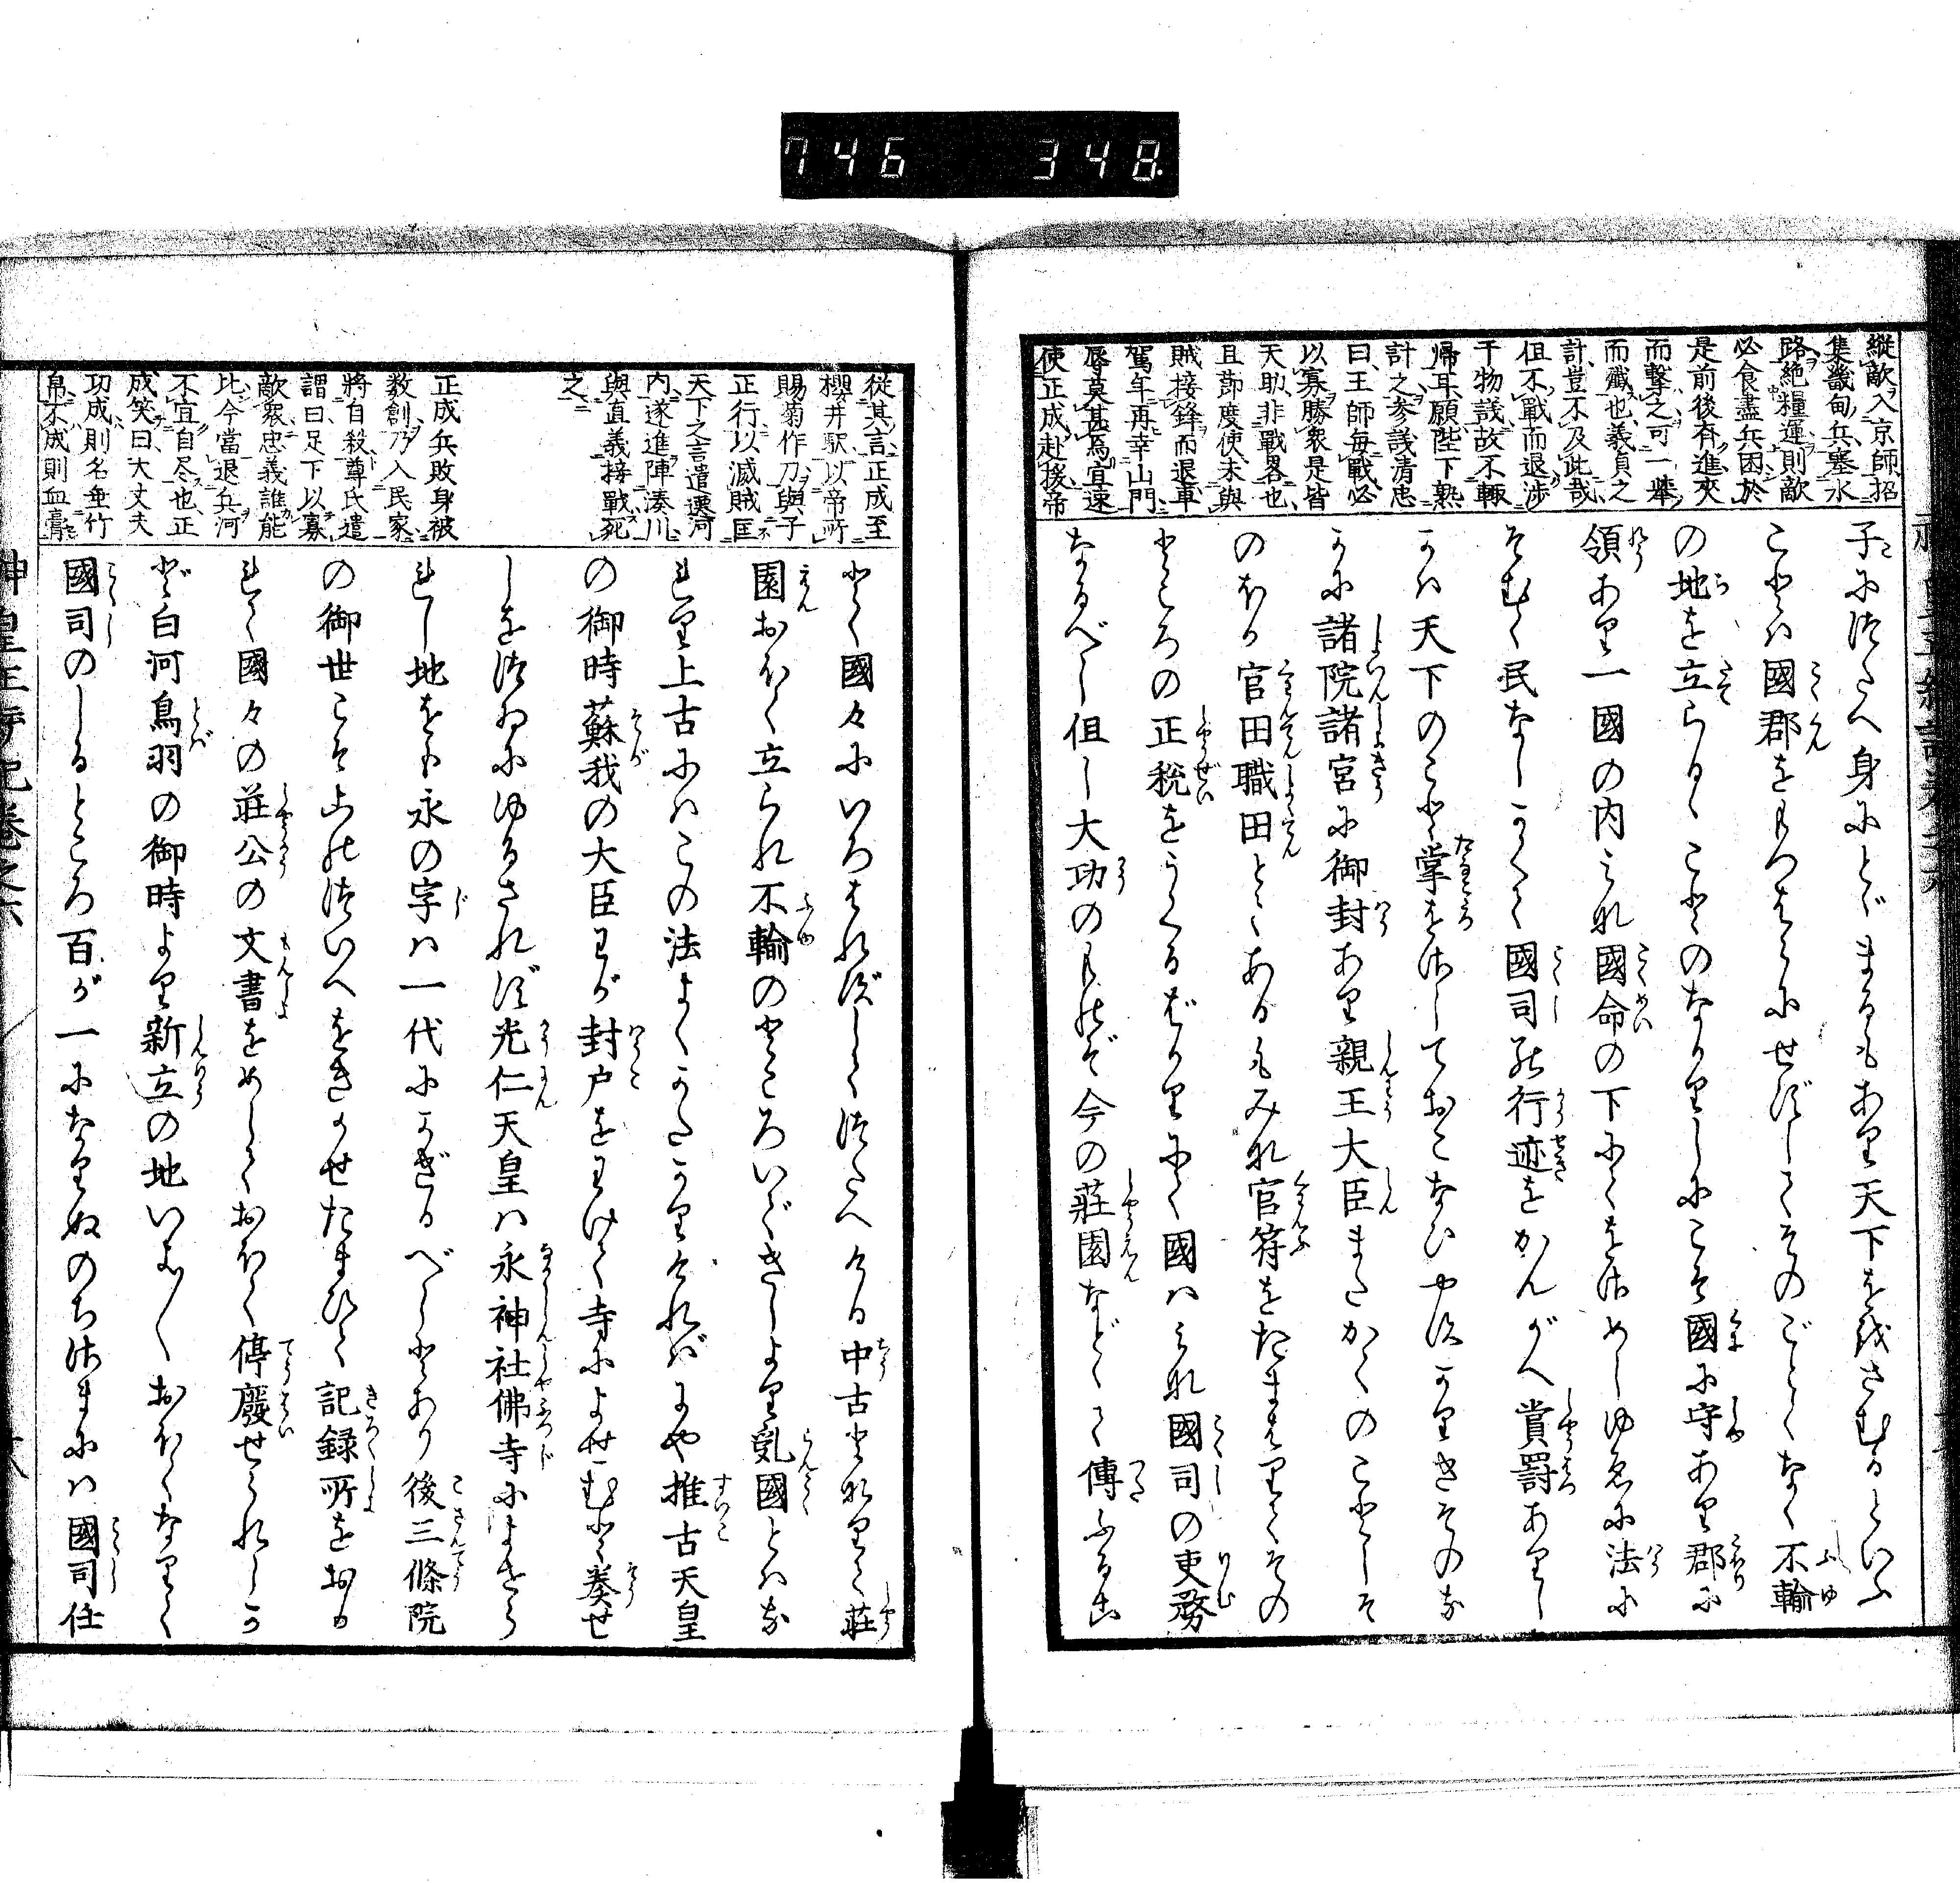 縱敵入京師招
集畿甸兵塞水
路絶糧運則敵
必食盡兵困於
是前後齊進夾
而撃之可一舉
而殲也義貞之
計豈不及此哉
但不戰而退渉
于物議故不輙
帰耳願陛下熟
計之參議清忠
曰王師毎戰必
以寡勝衆是皆
天助非戰畧也
且節度使未與
賊接鋒而退車
駕年再幸山門
辱莫甚焉宜速
使正成赴援帝
子につたへ身にとゞまるもあり天下を治さむるといふ
ことは國郡をもつはらにせずしてそのごとゝなく不輸
の地を立らるゝことのなかりしにこそ國に守あり郡に
領あり一國の内みな國命の下にてをさめしゆゑに法に
そむく民なしかくて國司の行迹をかんがへ賞罰ありし
かハ天下のこと掌をさしておこなひやすかりきその な
かに諸院諸宮に御封あり親王大臣またかくのことしそ
のほか官田職田とてあるもみな官符をたまはりてその
ところの正税をうくるばかりにて國ハみな國司の吏務
なるべし但し大功のものぞ今の莊園などゝて傳ふるこ
從其言正成至
櫻井駅以帝所
賜菊作刀與子
正行以滅賊匡
天下之言遣還河
内遂進陣湊川
與直義接戰死
之
正成兵敗身被
数創乃入民家
將自殺尊氏遣
謂曰足下以寡
敵衆忠義誰能
比今當退兵河
不宜自尽也正
成笑曰大丈夫
功成則名垂竹
帛不成則血膏
とく國々にいろはれずしてつたへける中古となりて莊
園おほく立られ不輸のところいできしより乱國とハな
れり上古にハこの法よくかたかりければにや推古天皇
の御時蘇我の大臣わが封戸をわけて寺によせむと奏せ
しをつゐにゆるされず光仁天皇ハ永神社佛寺によせら
れし地をも永の字ハ一代にかぎるべしとあり後三條院
の御世こそこのつひへをきかせたまひて記録所をおか
れて國々の莊公の文書をめしておほく停廢せられしか
ど白河鳥羽の御時より新立の地いよ〳〵おほくなりて
國司のしるところ百が一になりぬのちさまにハ國司任
神皇正統記巻之六
746 348